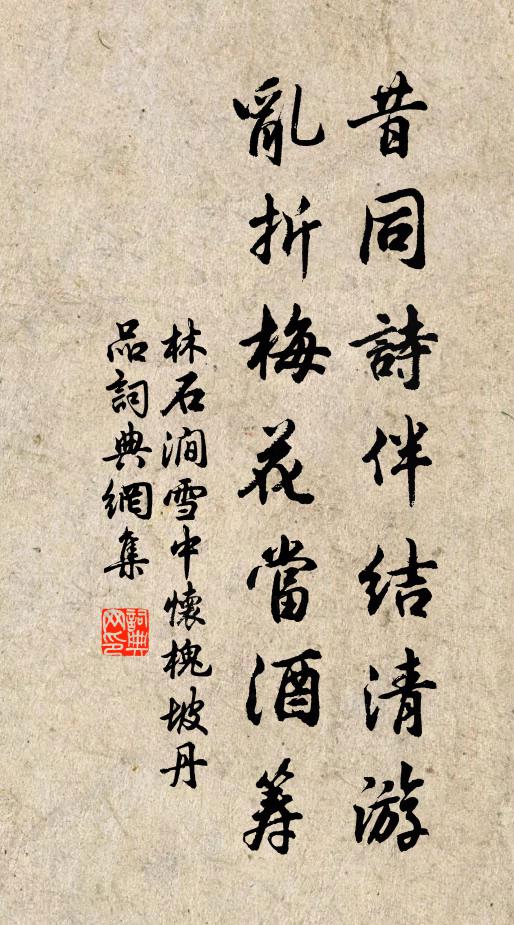 昔同詩伴結清游
亂折梅花當酒筹
林石澗雪中懷槐坡丹
品詞典網集
詞典网印